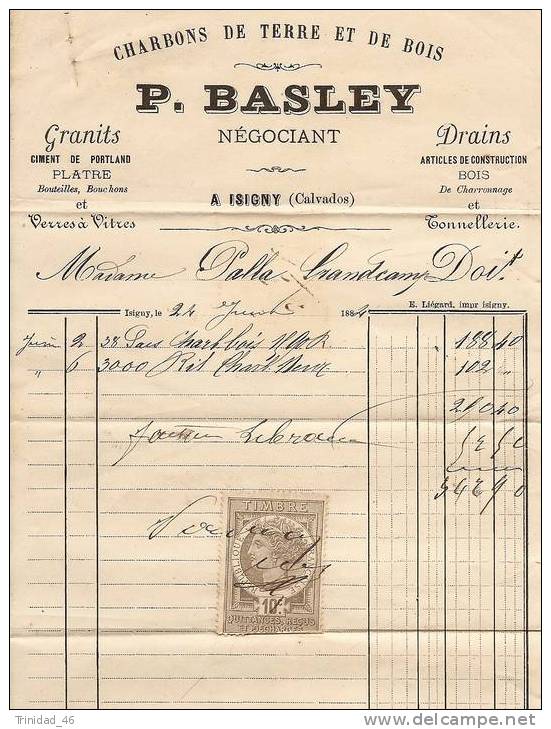 CHARBONS DE TERRE ET DE BOIS
P. BASLEY
NÉGOCIANT
A ISIGNY (Calvados)
Granits
CIMENT DE PORTLAND
PLATRE
Bouteilles, Bouchons
et
Verres à Vitres
Drains
ARTICLES DE CONSTRUCTION
BOIS
De Charronnage
et
Tonnellerie.
Madame Palla Grandcamp Doit
Isigny, le 24 188
E. Liégard, impr isigny.
Juin 2 38 Sacs 188 40
" 6 3000 102 "
290 40
TIMBRE
RÉPUBLIQUE FRANÇAISE
10c
QUITTANCES, REÇUS
ET DÉCHARGES
Trinidad_46
delcampe.net